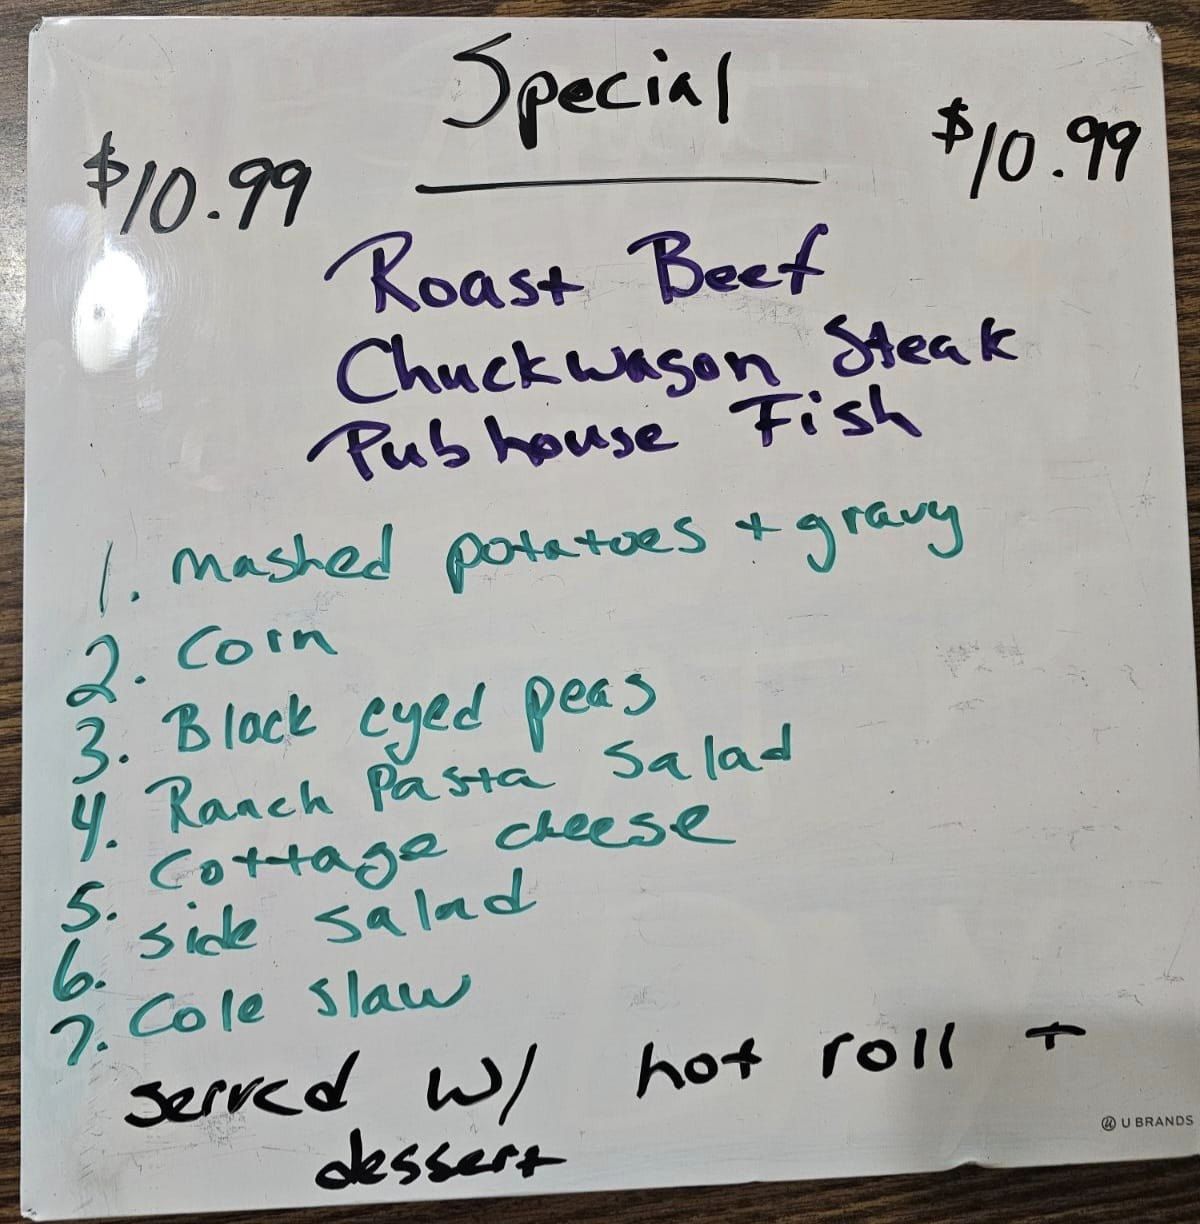 Special
$10.99 $10.99
Roast Beef
Chuckwagon Steak
Pubhouse Fish
1. mashed potatoes + gravy
2. Corn
3. Black eyed peas
4. Ranch Pasta Salad
5. Cottage cheese
6. side salad
7. Cole slaw
served w/ hot roll +
dessert
U BRANDS